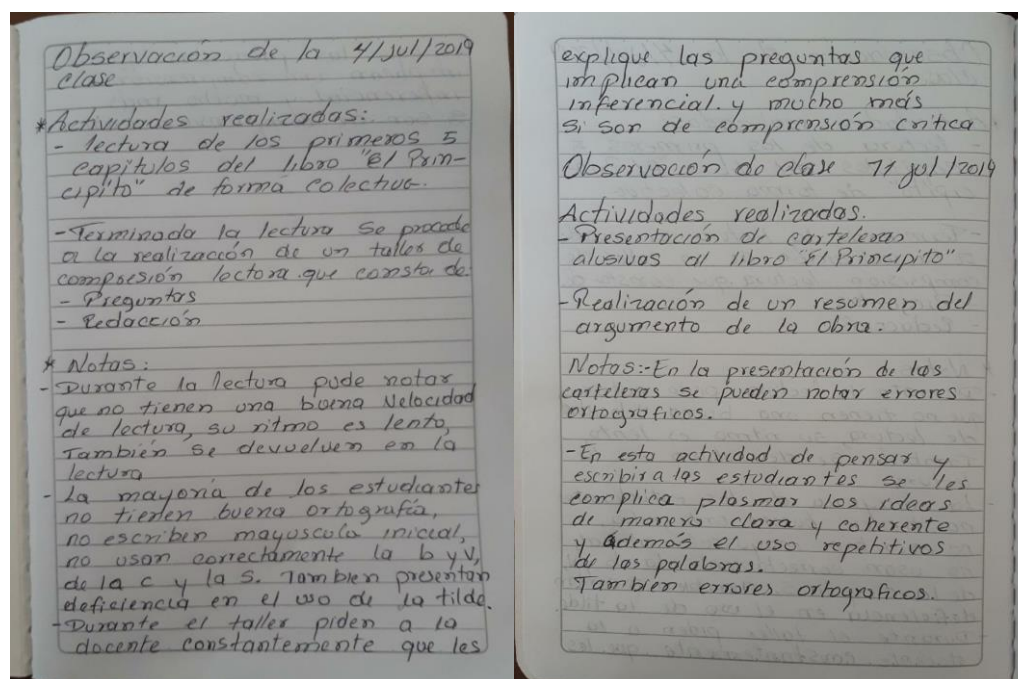 Observación de la 4/Jul/2019
clase
*Actividades realizadas:
- lectura de los primeros 5
capitulos del libro "El Prin-
cipito" de forma colectiva.
-Terminada la lectura se procede
a la realización de un taller de
compresión lectora que consta de:
- Preguntas
- Redacción
* Notas:
- Durante la lectura pude notar
que no tienen una buena velocidad
de lectura, su ritmo es lento,
También se devuelven en la
lectura
- La mayoría de los estudiantes
no tienen buena ortografía,
no escriben mayuscula inicial,
no usan correctamente la b y v,
de la c y la s. Tambien presentan
deficiencia en el uso de la tilde.
- Durante el taller piden a la
docente constantemente que les
explique las preguntas que
implican una comprensión
inferencial. y mucho más
si son de comprensión critica
Observación de clase 11 jul /2019
Actividades realizadas.
- Presentación de carteleras
alusivas al libro "El Principito"
-Realización de un resumen del
argumento de la obra.
Notas:-En la presentación de las
carteleras se pueden notar errores
ortograficos.
-En esta actividad de pensar y
escribir a las estudiantes se les
complica plasmar las ideas
de manera clara y coherente
y además el uso repetitivos
de las palabras.
Tambien errores ortograficos.